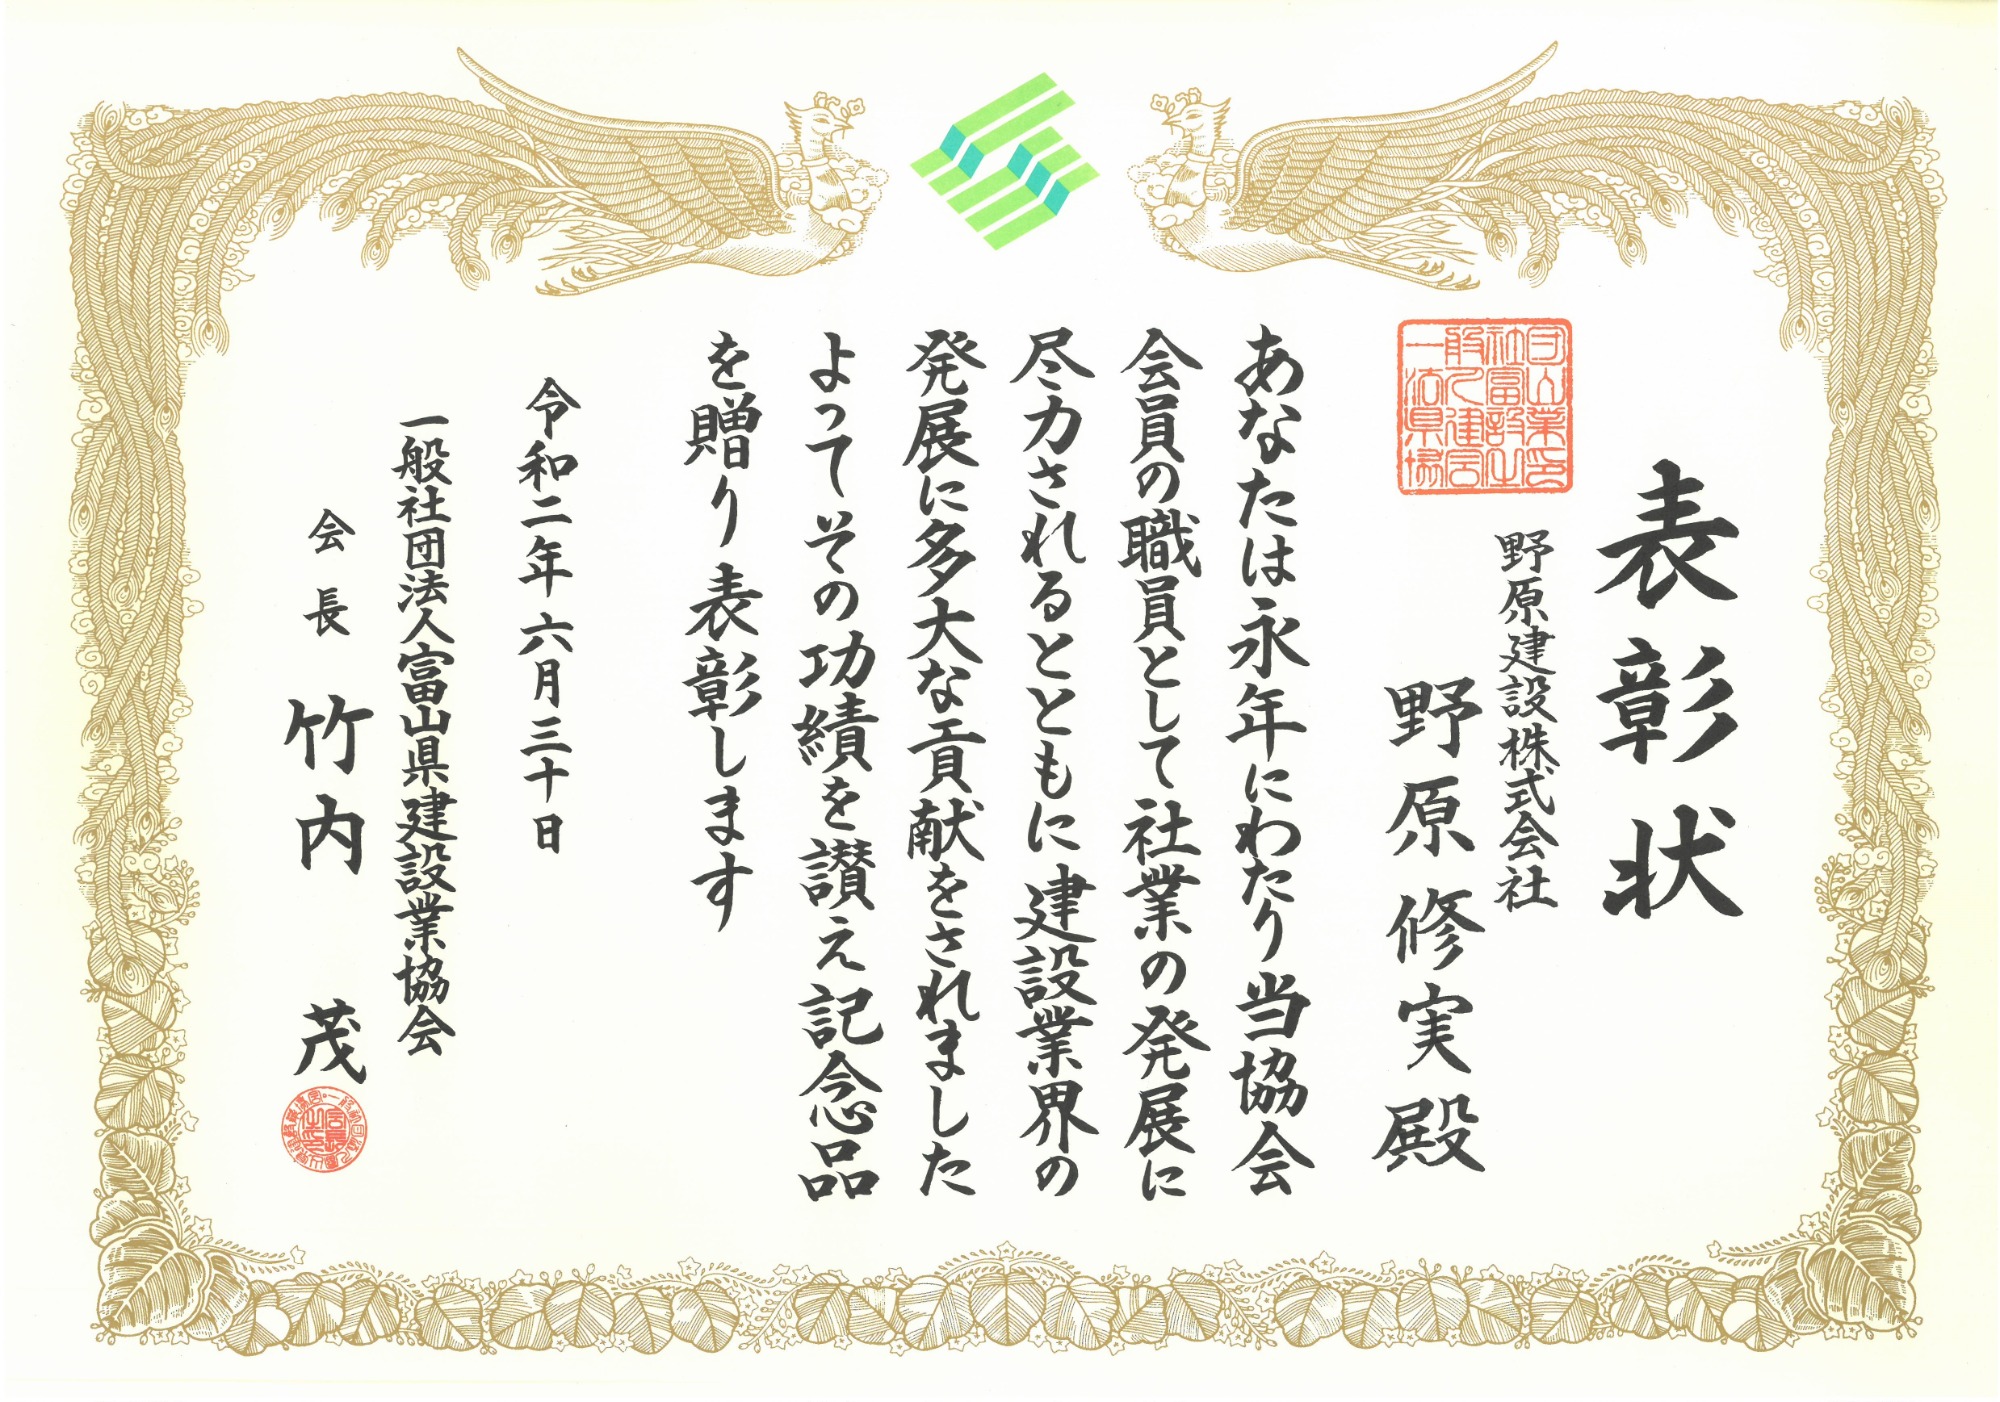 表彰状
野原建設株式会社
野原修実殿
あなたは永年にわたり当協会
会員の職員として社業の発展に
尽力されるとともに建設業界の
発展に多大な貢献をされました
よってその功績を讃え記念品
を贈り表彰します
令和二年六月三十日
一般社団法人富山県建設業協会
会長 竹内 茂